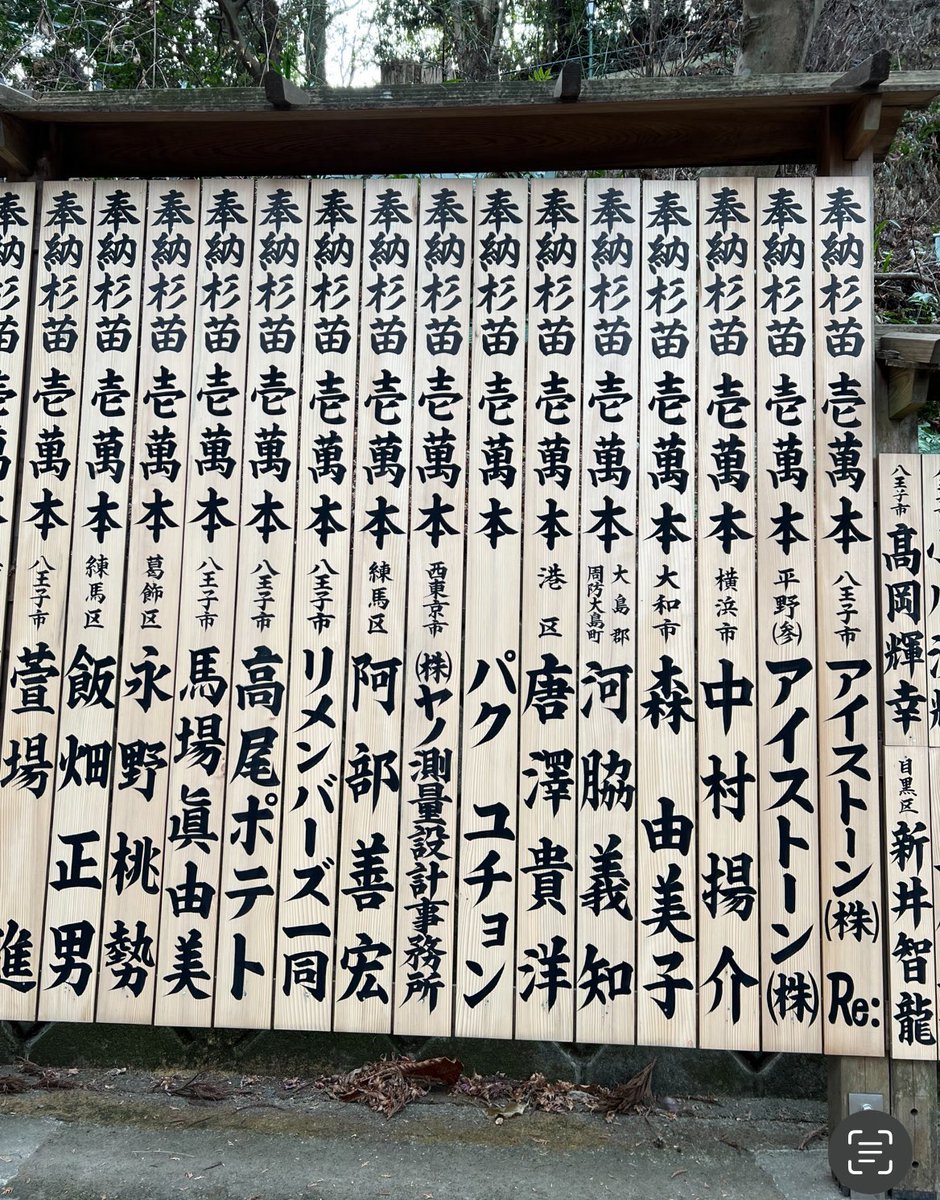 奉納杉苗壱萬本 八王子市 アイストーン(株) Re:
奉納杉苗壱萬本 平野(参) アイストーン(株)
奉納杉苗壱萬本 横浜市 中村揚介
奉納杉苗壱萬本 大和市 森 由美子
奉納杉苗壱萬本 大島郡周防大島町 河脇義知
奉納杉苗壱萬本 港区 唐澤貴洋
奉納杉苗壱萬本 パク ユチョン
奉納杉苗壱萬本 西東京市 (株)ヤノ測量設計事務所
奉納杉苗壱萬本 練馬区 阿部善宏
奉納杉苗壱萬本 八王子市 リメンバーズ一同
奉納杉苗壱萬本 八王子市 高尾ポテト
奉納杉苗壱萬本 八王子市 馬場眞由美
奉納杉苗壱萬本 葛飾区 永野桃勢
奉納杉苗壱萬本 練馬区 飯畑正男
奉納杉苗壱萬本 八王子市 萱場 進
奉納杉苗壱萬本
八王子市 髙岡輝幸
目黒区 新井智龍